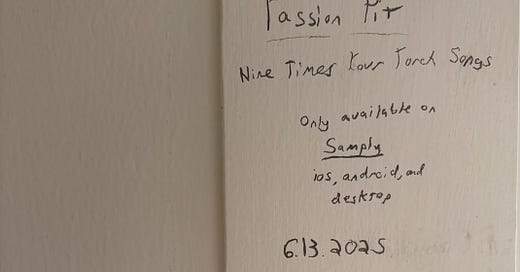 Passion Pit
Nine Times Four Torch Songs
Only available on
Samply
ios, android, and
desktop
6.13.2025